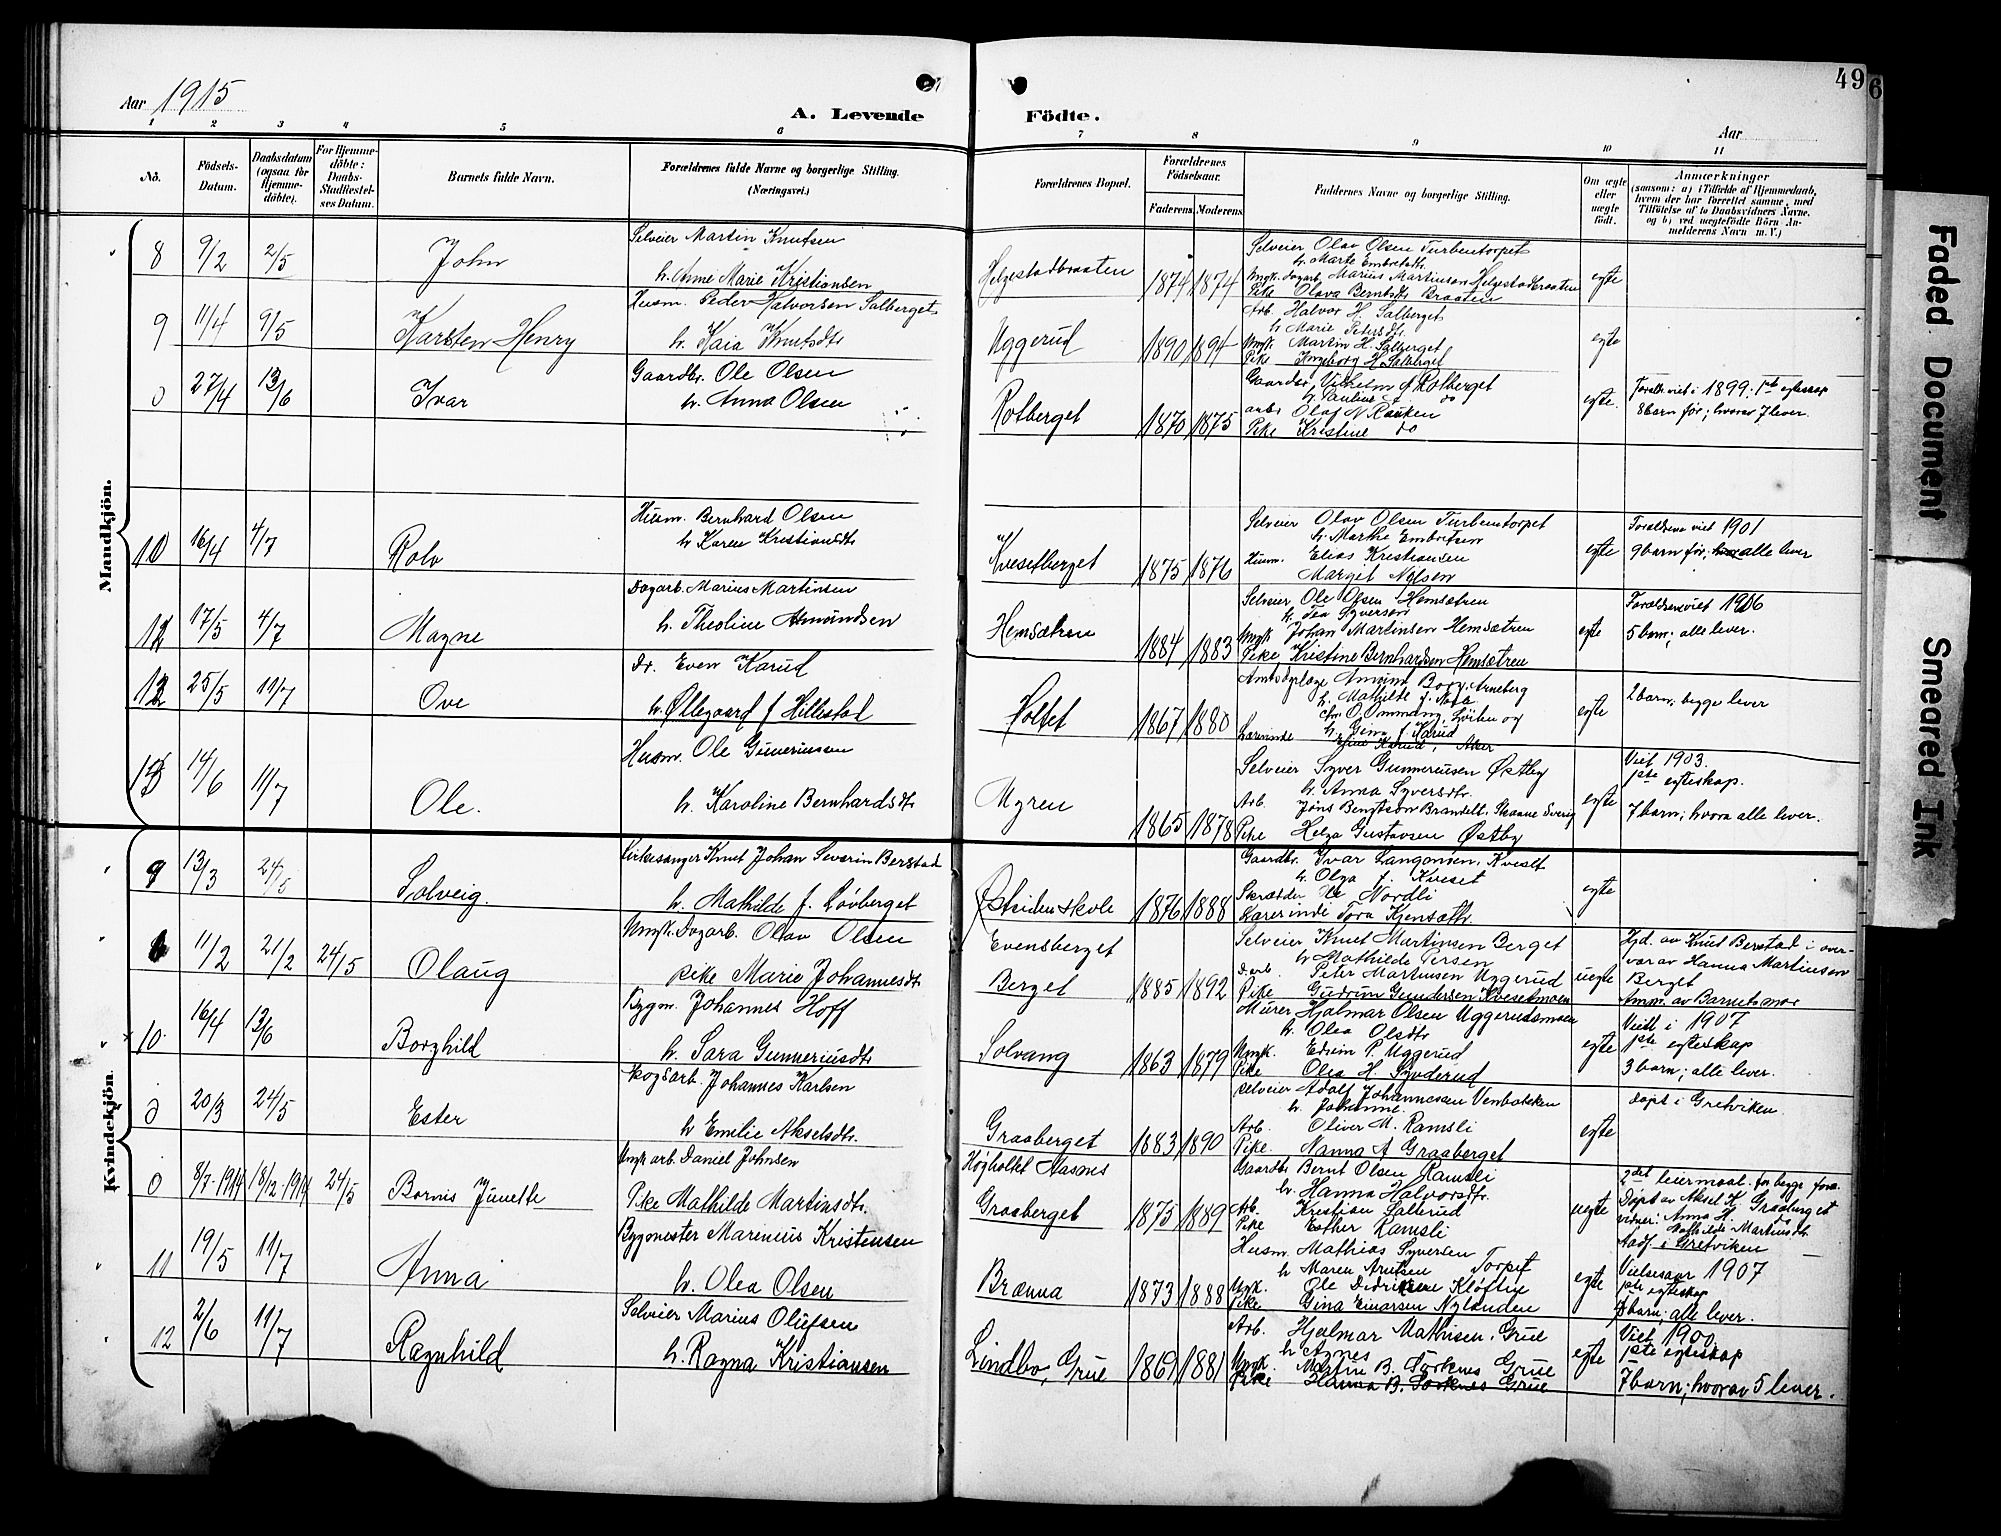 Aar 1915
A. Levende Födte.
Aar
49
6
1 2 3 4 5 6 7 8 9 10 11
No.
Födsels-Datum.
Daabsdatum (ogsaa for Hjemme-döbte).
For Hjemme-döbte: Daabs-Stadfæstel-ses Datum.
Barnets fulde Navn.
Forældrenes fulde Navne og borgerlige Stilling. (Næringsvei.)
Forældrenes Bopæl.
Forældrenes Födselsaar.
Faderens
Moderens
Faddernes Navne og borgerlige Stilling.
Om ægte eller uægte födt.
Anmærkninger
(saasom: a) i Tilfælde af Hjemmedaab, hvem der har forrettet samme, med Tilföielse af to Daabsvidners Navne, og b) ved uægtefödte Börn An-melderens Navn m. V.)
Mandkjön.
8 9/2 2/5 John
Selveier Martin Knutsen
h. Anne Marie Kristiansen
Helgestadbraaten 1874 1874
Selveier Olav Olsen Turbentorpet
h. Marte Embretsdtr.
Ungk. Dagarb. Marius Martinsen Helgestadbraaten
Pike Olava Berntsdtr Braaten
egte
9 11/4 9/5 Karsten Henry
Husm. Peder Halvorsen Salberget
h. Kaia Knutsdtr
Uggerud 1890 1894
Arb. Halvor H. Salberget
h. Marie Petersdtr.
Ungk. Martin H. Salberget
Pike Ingeborg H. Salberget
egte
0 27/4 13/6 Ivar
Gaardbr. Ole Olsen
h. Anna Olsen
Rotberget 1870 1875
Gaardbr. Vilhelm A Rotberget
h. Pauline A. do
arb. Olaf N. Rauken
Pike Kristine do
egte.
Foræld. viet i 1899. 1ste egteskap
8 barn før; hvorav 7 lever.
10 16/4 4/7 Rolv
Husm. Bernhard Olsen
h. Karen Kristiansdtr
Kvesetberget 1875 1876
Selveier Olav Olsen Turbentorpet
h. Marthe Embretsen
Husm. Elias Kristiansen
Marget Nilsen
egte
Forældrene viet 1901
9 barn før; alle lever
12 17/5 4/7 Magne
Dagarb. Marius Martinsen
h. Theoline Amundsen
Hemsætren 1884 1883
Selveier Ole Olsen Hemsætren
h. Tea Syversen
Ungk Johan Martinsen Hemsætren
Pike Kristine Bernhardsen Hemsætren
egte
Forældrene viet 1906
5 barn; alle lever.
12 25/5 11/7 Ove
Dr. Even Karud
h. Øllegaard f Hillestad
Holtet 1867 1880
h. Mathilde f.
h. Gina f. Karud
Lærerinde Karud, Aker
egte
2 barn; begge lever
13 14/6 11/7 Ole.
Husm. Ole Guneriusen
h. Karoline Bernhardsdtr
Myren 1865 1878
Selveier Syver Gunneriusen Østby
h. Anna Syversdtr.
Arb. Jöns Bengtson Brandelt, Skaane Sverig
Pike Helga Gustavsen Østby
egte
Viet 1903.
1ste egteskap.
7 barn; hvorav alle lever.
Kvindekjön.
9 13/3 24/5 Solveig.
Kirkesanger Knut Johan Severin Berstad
h. Mathilde f. Løvberget
Østsiden skole 1876 1888
Gaardbr. Ivar Langonsen, Kveset
h. Olga f. Kveset
Skrædder Nordli
Lærerinde Tora Kjenseth.
egte
11/2 21/2 24/5 Olaug
Ungk. Dagarb. Olav Olsen
pike Marie Johannesdtr
Evensberget
Berget 1885 1892
Selveier Knut Martinsen Berget
h Mathilde Persen
D.arb. Peter Martinsen Uggerud
Pike Gudrun Gundersen Kvesetmoen
uegte
Hjd. av Knut Berstad i over-
vær av Hanna Martinsen
Berget
Anm. av Barnets mor
10. 16/4 13/6 Borghild
Bygm. Johannes Hoff
h. Sara Gunneriusdtr
Solvang 1863 1879
Murer Hjalmar Olsen Uggerudsmoen
h. Olea Olsdtr
Ungk. Edvin P. Uggerud
Pike Olea H. Synderud
egte
Viet i 1907
1ste egteskap
3 barn; alle lever.
0 20/3 24/5 Ester
Skogsarb. Johannes Karlsen
h Emelie Akselsdtr.
Graaberget 1883 1890
Selveier Adolf Johannesen Venbateken
h. Johanne.
Arb. Oliver M. Ramsli
Pike. Nanna A Graaberget
egte
døpt i Gretviken.
0 8/7-1914 18/12-1914 24/5 Bornis Junette
Ungk arb. Daniel Johnsen
Pike Mathilde Martinsdtr.
Høgholtet Aasnes
Graaberget 1875 1889
Gaardbr Bernt Olsen Ramsli
h. Hanna Halvorsdtr.
Arb. Kristian Sallerud
Pike Esther Ramsli
uegte
2det leiermaal for begge foræ.
Døpt av Aksel K. Graaberget
vidner: Anna H. do
Mathilde Martinsdtr
Aadf. i Gretviken
11 19/5 11/7 Anna
Bygmester Marenius Kristensen
h. Olea Olsen
Brænna 1873 1888
Husm. Mathias Syversen
h Maren Arntsen Torpet
Ungk. Ole Didriksen Kløften
Pike Gina Einarsen Nylenden
egte
Vielsesaar 1907
1ste egteskap
barn; alle lever.
12 2/6 11/7 Ragnhild
Selveier Marius Olufsen
h. Ragna Kristiansen
Lindbo, Grue 1869 1881
Arb. Hjalmar Mathisen, Grue
h Agnes
Ungk. Martin B. Torknes Grue
Pike Hanna B. Torknes Grue
egte
Viet 1900
1ste egteskap
7 barn; hvorav 5 lever.
Faded Document
Smeared Ink